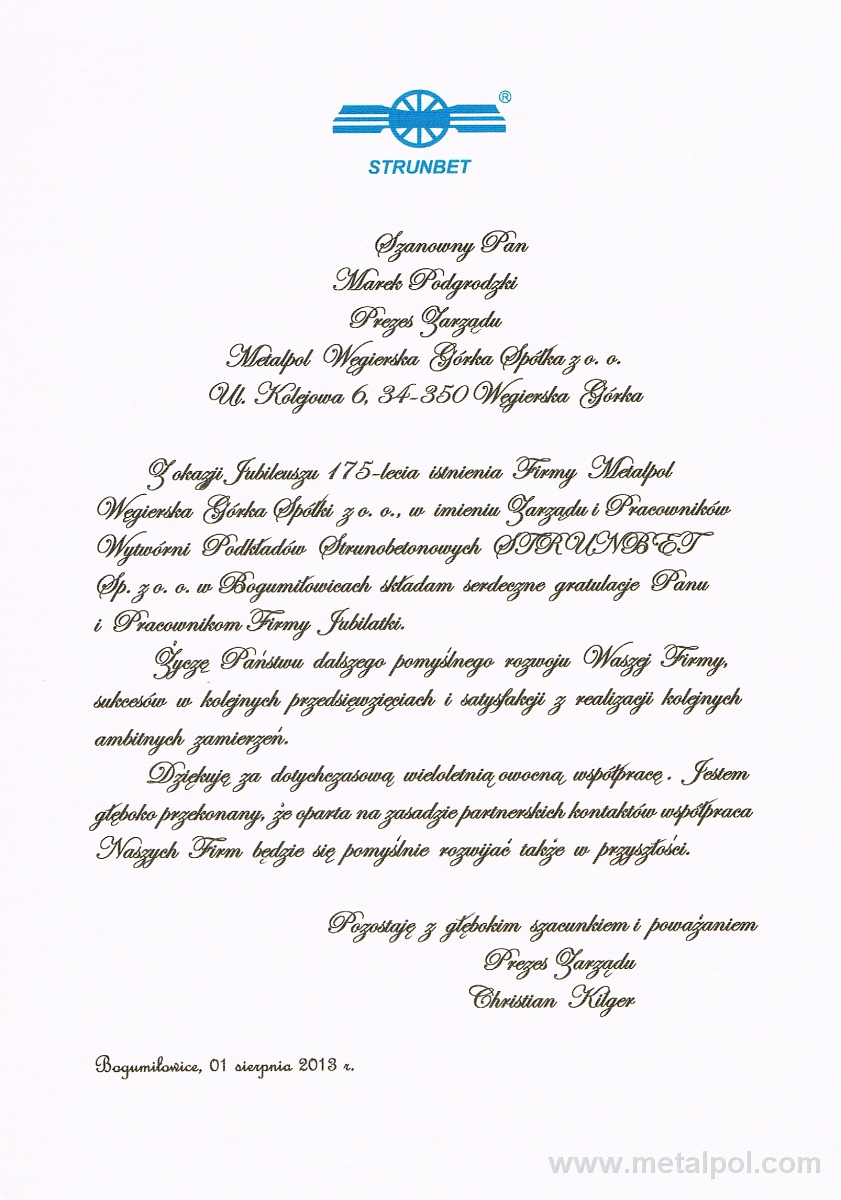 ®
STRUNBET
Szanowny Pan
Marek Podgrodzki
Prezes Zarządu
Metalpol Węgierska Górka Spółka z o. o.
Ul. Kolejowa 6, 34-350 Węgierska Górka
Z okazji Jubileuszu 175-lecia istnienia Firmy Metalpol
Węgierska Górka Spółki z o. o., w imieniu Zarządu i Pracowników
Wytwórni Podkładów Strunobetonowych STRUNBET
Sp. z o. o. w Bogumiłowicach składam serdeczne gratulacje Panu
i Pracownikom Firmy Jubilatki.
Życzę Państwu dalszego pomyślnego rozwoju Waszej Firmy,
sukcesów w kolejnych przedsięwzięciach i satysfakcji z realizacji kolejnych
ambitnych zamierzeń.
Dziękuję za dotychczasową wieloletnią owocną współpracę. Jestem
głęboko przekonany, że oparta na zasadzie partnerskich kontaktów współpraca
Naszych Firm będzie się pomyślnie rozwijać także w przyszłości.
Pozostaję z głębokim szacunkiem i poważaniem
Prezes Zarządu
Christian Kilger
Bogumiłowice, 01 sierpnia 2013 r.
www.metalpol.com